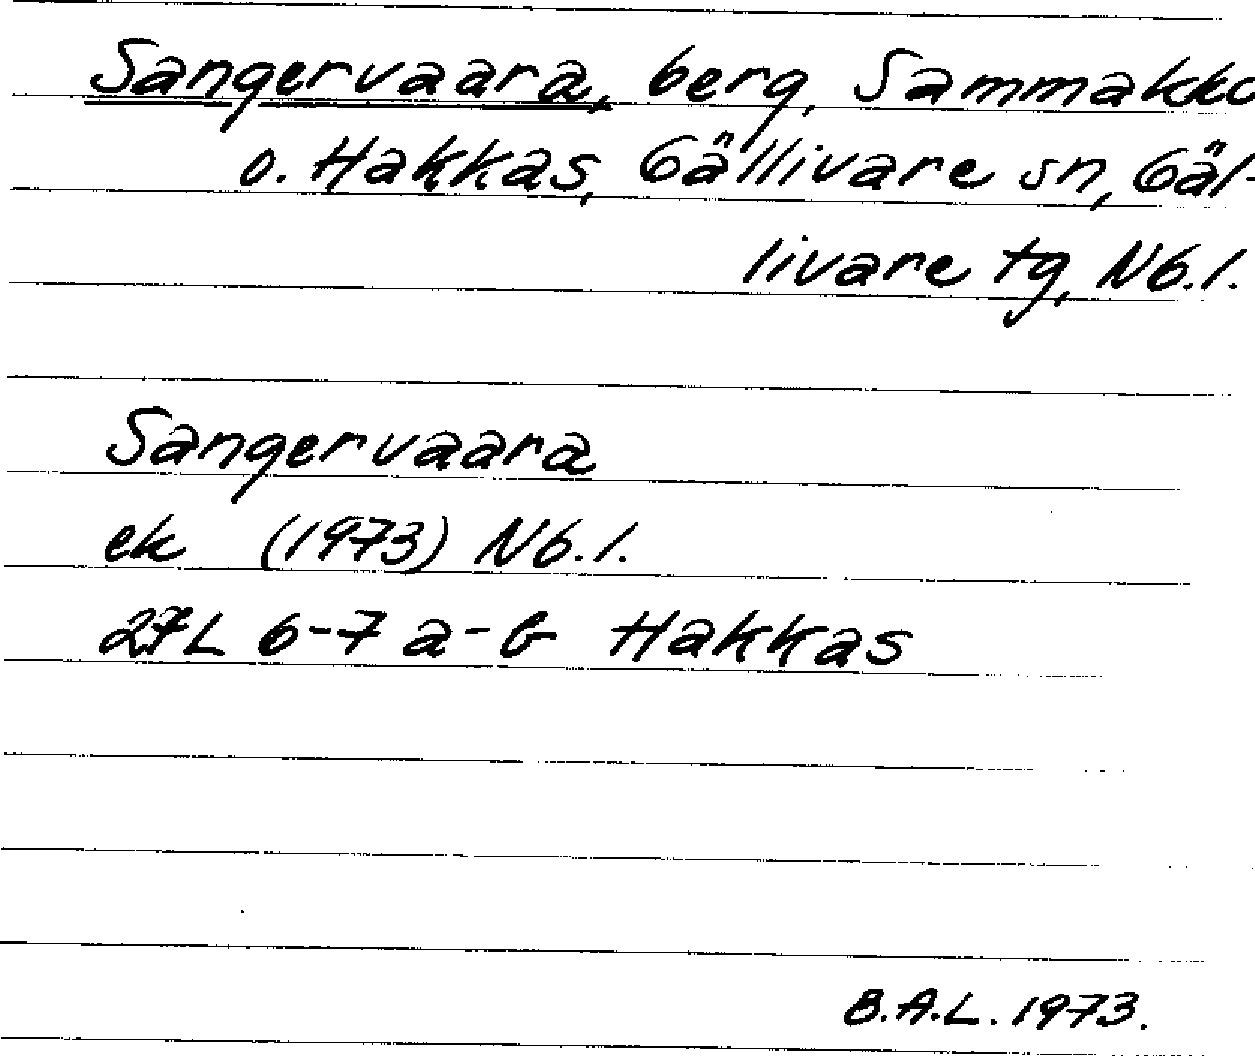 Sangervaara, berg, Sammakko
o. Hakkas, Gällivare sn, Gäl-
livare tg, Nb.l.
Sangervaara
ek (1973) Nb.l.
27L 6-7 a-b Hakkas
B.A.L. 1973.